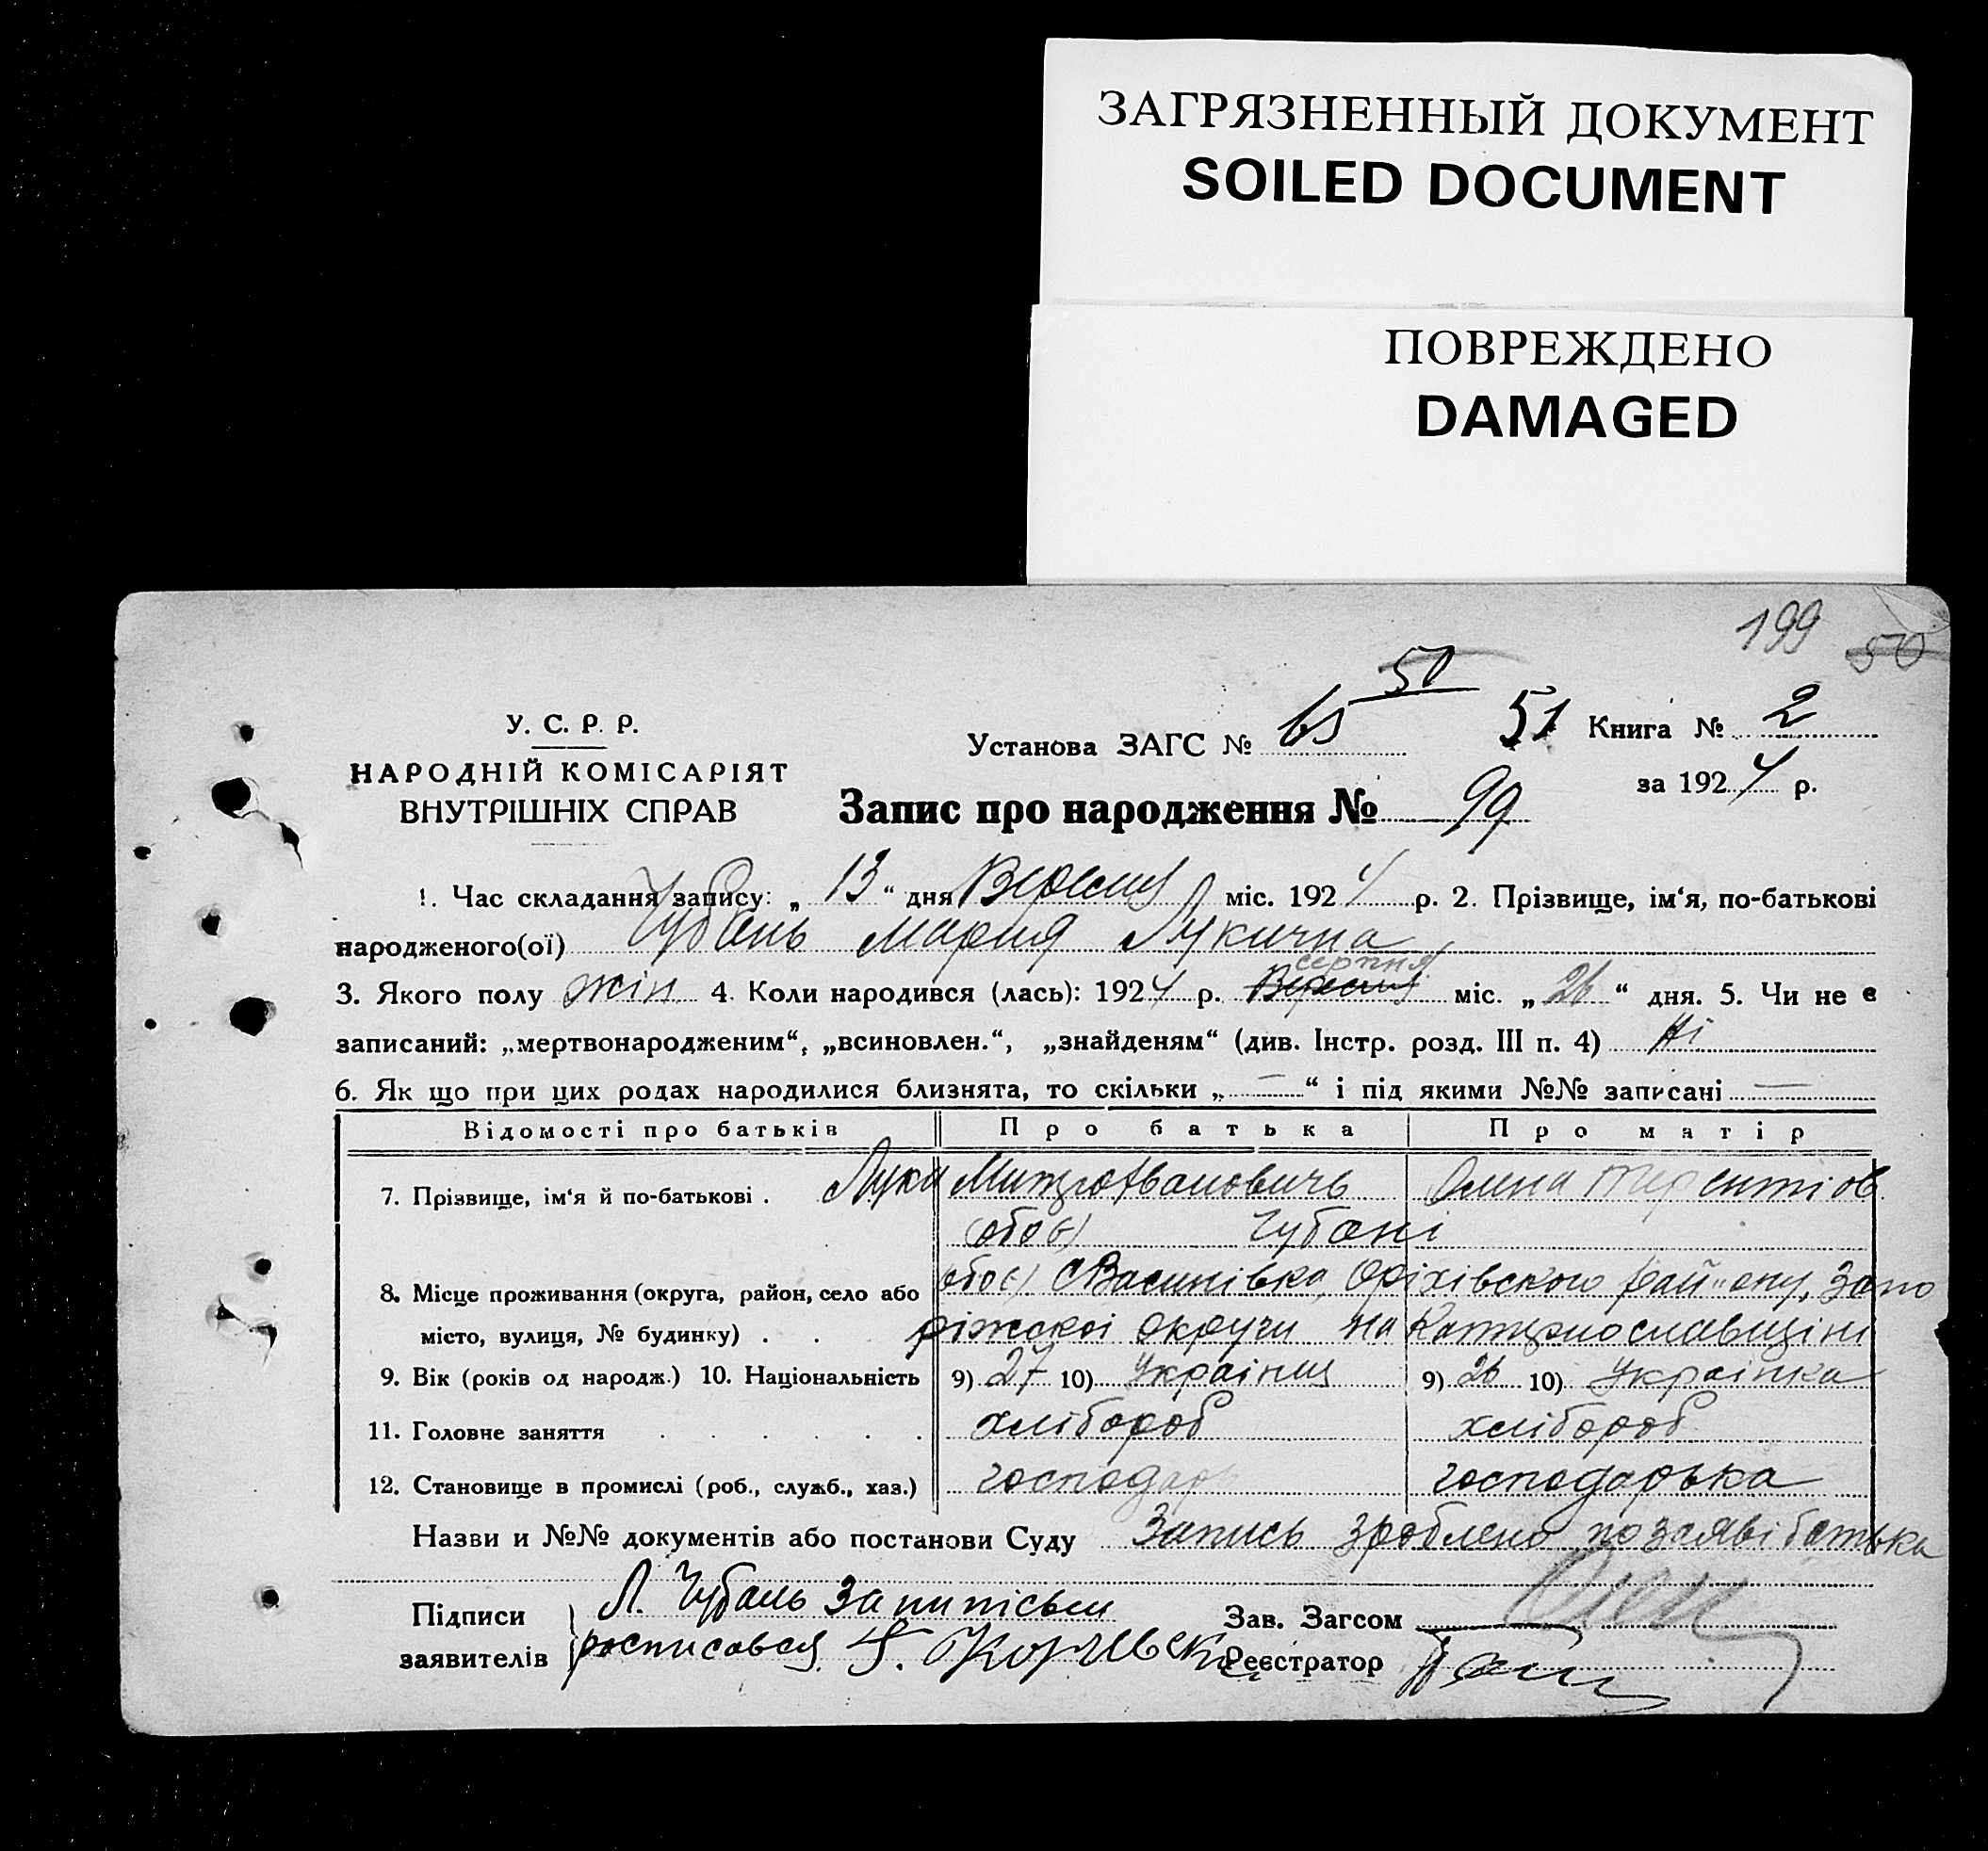 ЗАГРЯЗНЕННЫЙ ДОКУМЕНТ
SOILED DOCUMENT
ПОВРЕЖДЕНО
DAMAGED
199 50
50
У. С. Р. Р.
НАРОДНІЙ КОМІСАРІЯТ
ВНУТРІШНІХ СПРАВ
Установа ЗАГС № 65 51 Книга № 2
за 1924 р.
Запис про народження № 99
1. Час складання запису: „ 13 “ дня Вересня міс. 1924 р. 2. Прізвище, ім‘я, по-батькові
народженого(ої) Чубань Мария Лукична
серпня
3. Якого полу жін 4. Коли народився (лась): 1924 р. Вересня міс. „ 26 “ дня. 5. Чи не є
записаний: „мертвонародженим“, „всиновлен.“, „знайденям“ (див. Інстр. розд. III п. 4) Ні
6. Як що при цих родах народилися близнята, то скільки „ — “ і під якими №№ записані —
Відомості про батьків Про батька Про матір
7. Прізвище, ім‘я й по-батькові . Лука Митрофановичь Олена Терентіов
(обоє) Чубані
8. Місце проживання (округа, район, село або обоє) с Васинівка, Оріхівського району, Запо
місто, вулиця, № будинку) . . ріжскої округи на Катеринославщіні
9. Вік (років од народж.) 10. Національність 9) 27 10) Украінця 9) 26 10) Украінка
11. Головне заняття . . . . . . хлібороб хлібороб
12. Становище в промислі (роб., служб., хаз.) господар господарька
Назви и №№ документів або постанови Суду Запись зроблено по заяві батька
Підписи Л. Чубань Зав. Загсом
заявителів росписовся Реєстратор